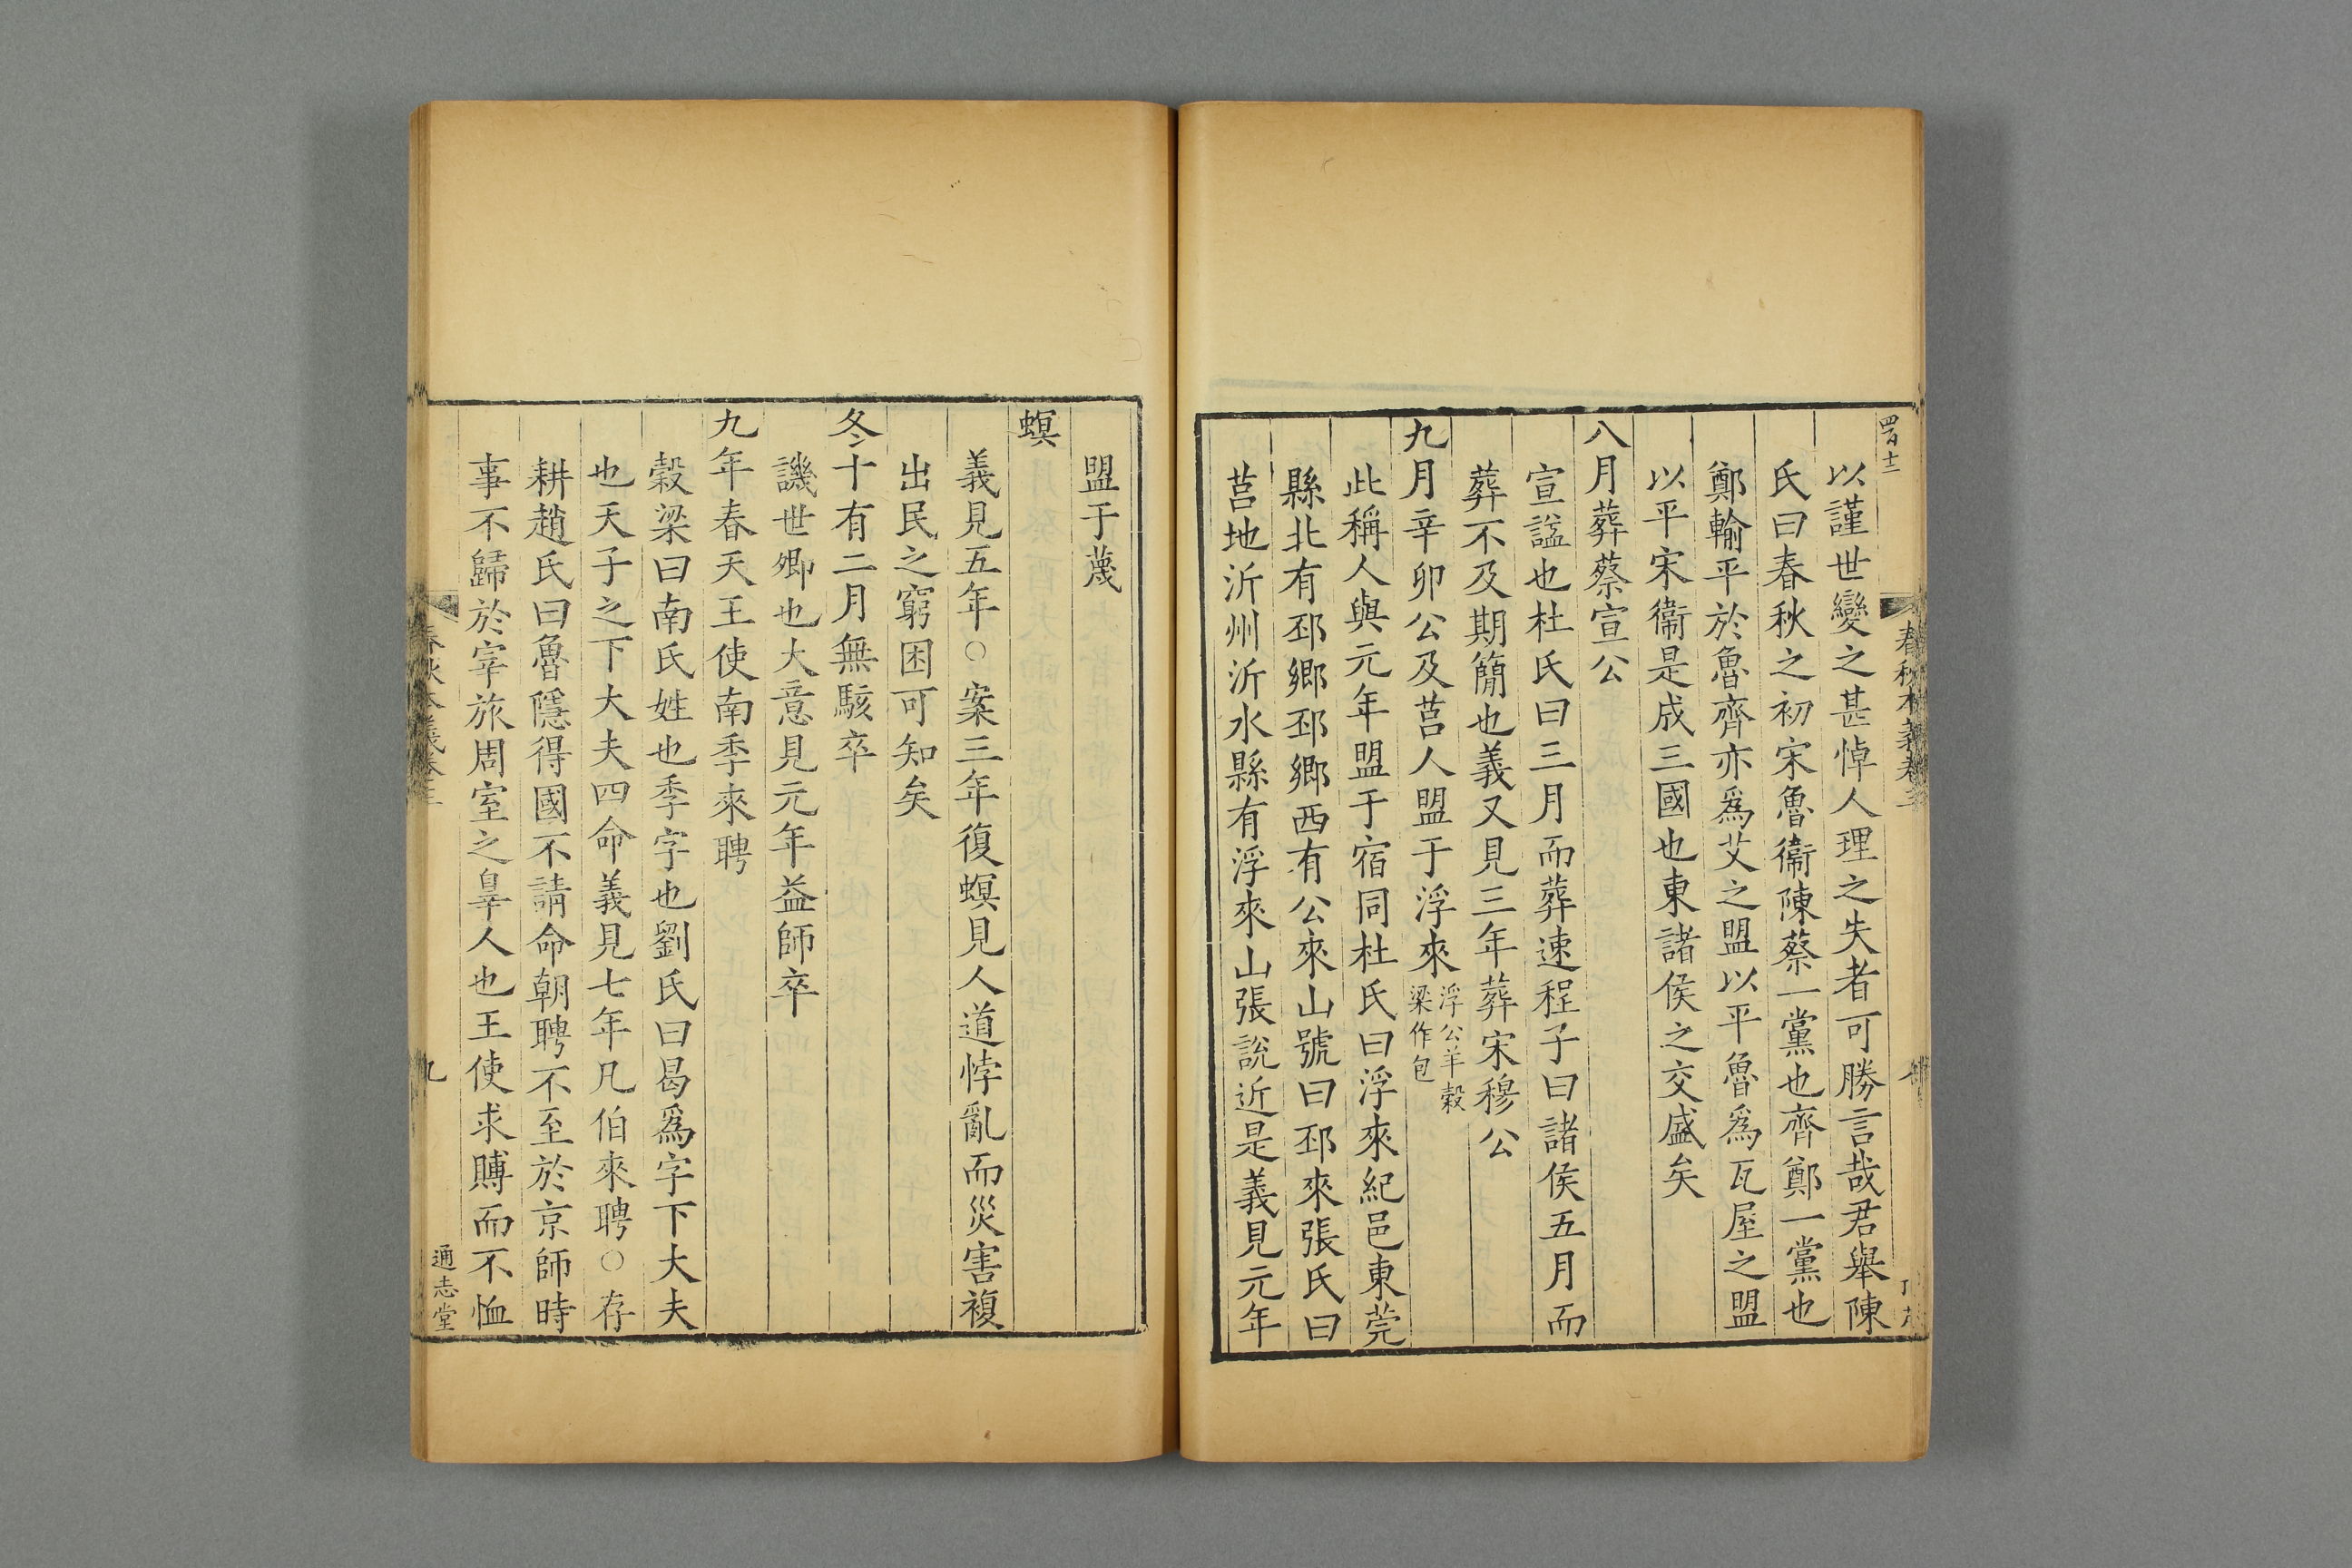 以謹世變之甚悼人理之失者可勝言哉君舉陳
氏曰春秋之初宋魯衞陳蔡一黨也齊鄭一黨也
鄭輸平於魯齊亦爲艾之盟以平魯爲瓦屋之盟
以平宋衞是成三國也東諸侯之交盛矣
八月葬蔡宣公
宣謚也杜氏曰三月而葬速程子曰諸侯五月而
葬不及期簡也義又見三年葬宋穆公
九月辛卯公及莒人盟于浮來
浮公羊穀
梁作包
此稱人與元年盟于宿同杜氏曰浮來紀邑東莞
縣北有邳鄉邳鄉西有公來山號曰邳來張氏曰
莒地沂州沂水縣有浮來山張說近是義見元年
盟于蔑
螟
義見五年○案三年復螟見人道悖亂而災害複
出民之窮困可知矣
冬十有二月無駭卒
譏世卿也大意見元年益師卒
九年春天王使南季來聘
穀梁曰南氏姓也季字也劉氏曰曷爲字下大夫
也天子之下大夫四命義見七年凡伯來聘○存
耕趙氏曰魯隱得國不請命朝聘不至於京師時
事不歸於宰旅周室之辠人也王使求賻而不恤
春秋本義卷三
九
通志堂